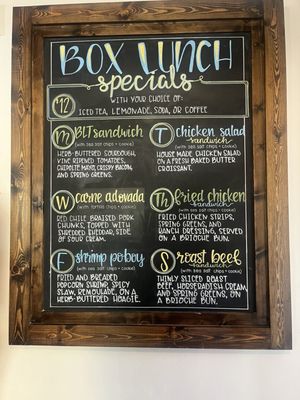 BOX LUNCH
specials
$12
WITH YOUR CHOICE OF:
ICED TEA, LEMONADE, SODA, OR COFFEE
M BLT sandwich
(with sea salt chips + cookie)
HERB-BUTTERED SOURDOUGH,
VINE RIPENED TOMATOES,
CHIPOTLE MAYO, CRISPY BACON,
AND SPRING GREENS.
T chicken salad
sandwich
(with sea salt chips + cookie)
HOUSE MADE CHICKEN SALAD
ON A FRESH BAKED BUTTER
CROISSANT.
W carne adovada
(with tortilla chips + cookie)
RED CHILE BRAISED PORK
CHUNKS, TOPPED WITH
SHREDDED CHEDDAR, SIDE
OF SOUR CREAM.
Th fried chicken
sandwich
(with sea salt chips + cookie)
FRIED CHICKEN STRIPS,
SPRING GREENS, AND
RANCH DRESSING, SERVED
ON A BRIOCHE BUN.
F shrimp po boy
(with sea salt chips + cookie)
FRIED AND BREADED
POPCORN SHRIMP, SPICY
SLAW, REMOULADE, ON A
HERB-BUTTERED HOAGIE.
S roast beef
sandwich
(with sea salt chips + cookie)
THINLY SLICED ROAST
BEEF, HORSERADISH CREAM
AND SPRING GREENS, ON
A BRIOCHE BUN.